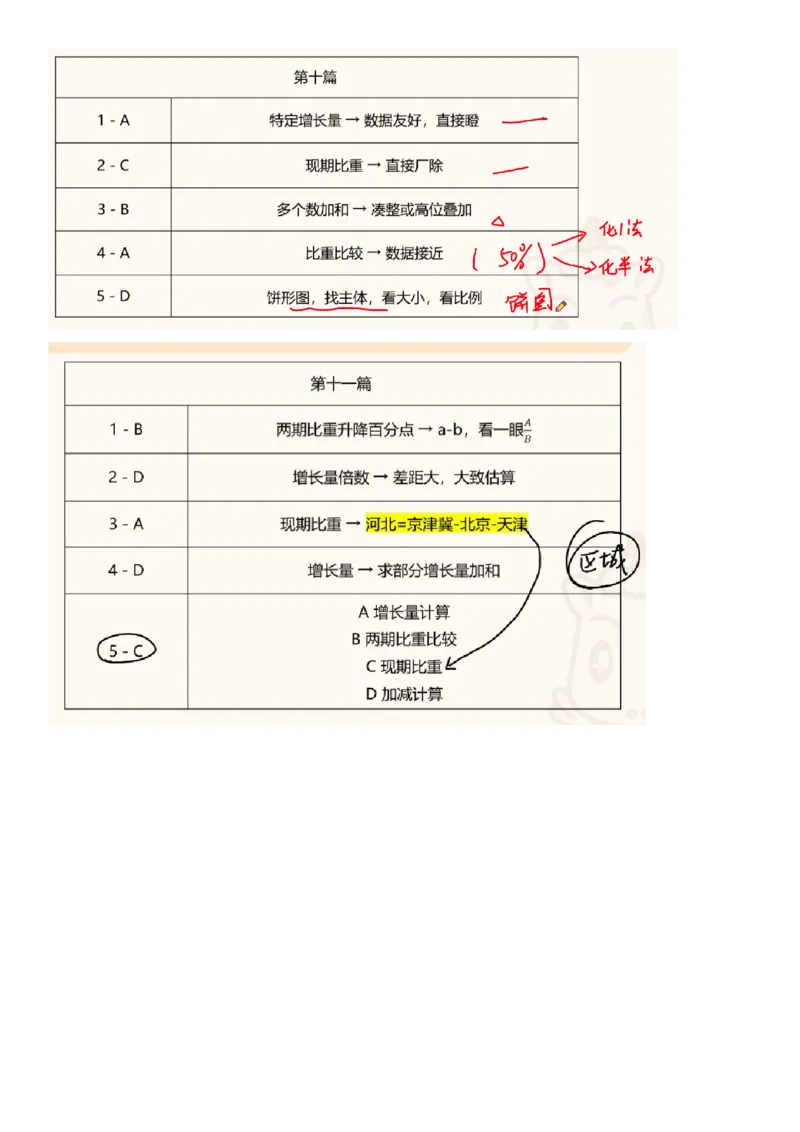 第十篇
1 - A 特定增长量 → 数据友好，直接瞪
2 - C 现期比重 → 直接厂除
3 - B 多个数加和 → 凑整或高位叠加
化1法
4 - A 比重比较 → 数据接近 (50%)
化半法
5 - D 饼形图，找主体，看大小，看比例 饼图
第十一篇
1 - B 两期比重升降百分点 → a-b，看一眼A/B
2 - D 增长量倍数 → 差距大，大致估算
3 - A 现期比重 → 河北=京津冀-北京-天津
区域
4 - D 增长量 → 求部分增长量加和
A 增长量计算
B 两期比重比较
5 - C
C 现期比重
D 加减计算